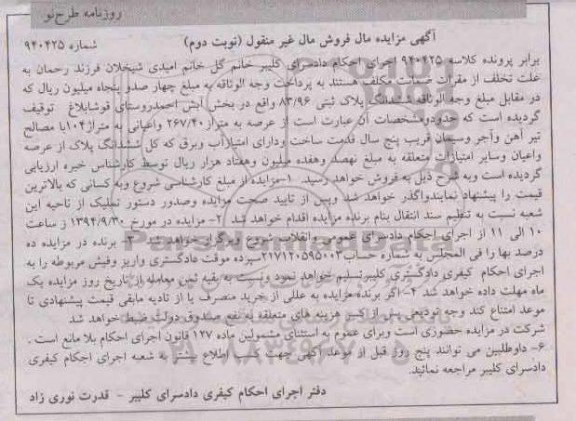 روزنامه طرح نو
آگهی مزایده مال فروش مال غیر منقول (نوبت دوم)
شماره ۹۴۰۴۲۵
برابر پرونده کلاسه ۹۴۰۴۲۵ اجرای احکام دادسرای کلیبر خانم گل خانم امیدی شیخلان فرزند رحمان به
علت تخلف از مقررات ضمانت مکلف هستند به پرداخت وجه الوثاقه به مبلغ چهار صدو پنجاه میلیون ریال که
در مقابل مبلغ وجه الوثاقه ششدانگ پلاک ثبتی ۸۳/۹۶ واقع در بخش آبش احمدروستای قوشابلاغ توقیف
گردیده است که حدودومشخصات آن عبارت است از عرصه به متراژ ۲۶۷/۴۰ واعیانی به متراژ۱۰۴با مصالح
تیر آهن وآجر وسیمان قریب پنج سال قدمت ساخت ودارای امتیازآب وبرق که کل ششدانگ پلاک از عرصه
واعیان وسایر امتیازات متعلقه به مبلغ نهصد وهفده میلیون وهفتاد هزار ریال توسط کارشناس خبره ارزیابی
گردیده است وبه شرح ذیل به فروش خواهد رسید. ۱-مزایده از مبلغ کارشناسی شروع وبه کسانی که بالاترین
قیمت را پیشنهاد نمایندواگذار خواهد شد وپس از تایید صحت مزایده وصدور دستور تملیک از ناحیه این
شعبه نسبت به تنظیم سند انتقال بنام برنده مزایده اقدام خواهد شد ۲- مزایده در مورخ ۱۳۹۴/۹/۳۰ ز ساعت
۱۰ الی ۱۱ از اجرای احکام دادسرای عمومی وانقلاب شروع وبرگزار خواهد شد ۳- برنده در مزایده ده
درصد بها را فی المجلس به شماره حساب ۲۱۷۱۲۰۵۹۵۰۰۳سپرده موقت دادگستری واریز وفیش مربوطه را به
اجرای احکام کیفری دادگستری کلیبرتسلیم خواهد نمود ونسبت به بقیه ثمن معامله از تاریخ روز مزایده یک
ماه مهلت داده خواهد شد ۴- اگر برنده مزایده به عللی از خرید منصرف یا از تادیه مابقی قیمت پیشنهادی تا
موعد امتناع کند وجه تودیعی پس از کسر هزینه های متعلقه به نفع صندوق دولت ضبط خواهد شد
شرکت در مزایده حضوری است وبرای عموم به استثنای مشمولین ماده ۱۲۷ قانون اجرای احکام بلا مانع است .
۶- داوطلبین می توانند پنج روز قبل از موعد آگهی جهت کسب اطلاع بیشتر به شعبه اجرای احکام کیفری
دادسرای کلیبر مراجعه نمائید.
دفتر اجرای احکام کیفری دادسرای کلیبر - قدرت نوری زاد